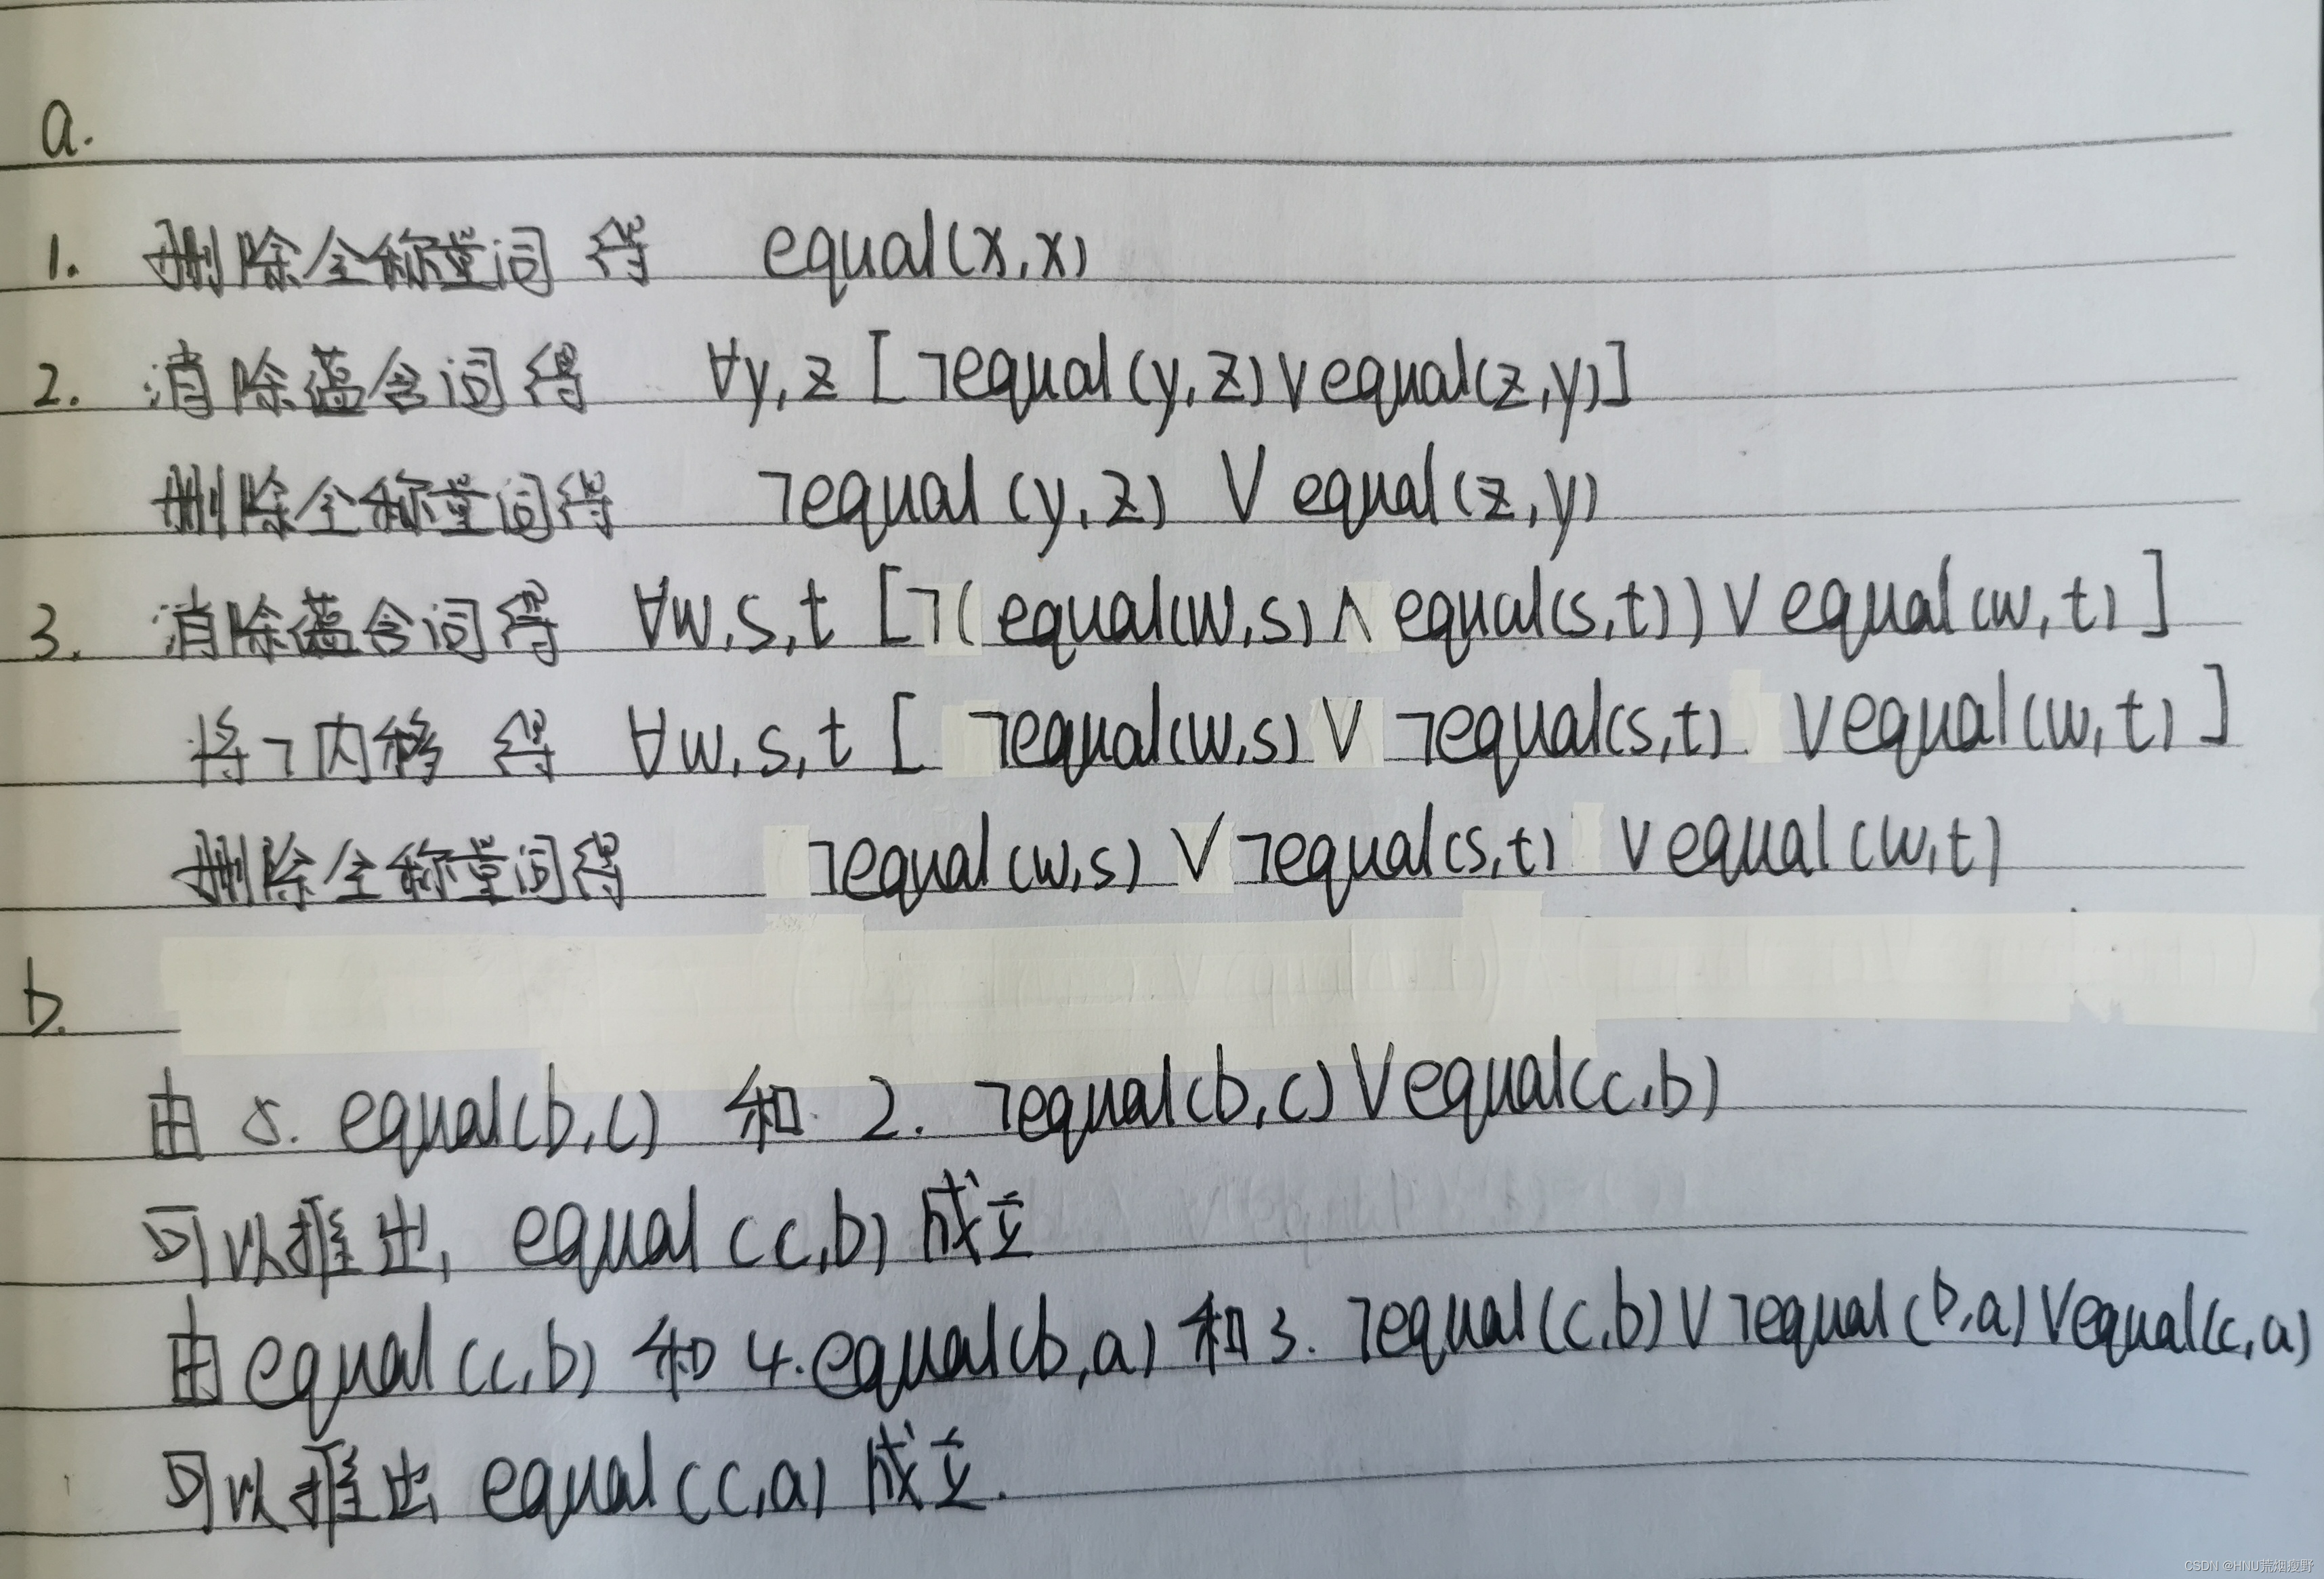 a.
1. 删除全称量词得 equal(x,x)
2. 消除蕴含词得 ∀y,z [¬equal(y,z)∨equal(z,y)]
删除全称量词得 ¬equal(y,z) ∨ equal(z,y)
3. 消除蕴含词得 ∀w,s,t [¬(equal(w,s)∧equal(s,t))∨equal(w,t)]
将¬内移 得 ∀w,s,t [¬equal(w,s)∨¬equal(s,t)∨equal(w,t)]
删除全称量词得 ¬equal(w,s)∨¬equal(s,t)∨equal(w,t)
b.
由 5. equal(b,c) 和 2. ¬equal(b,c)∨equal(c,b)
可以推出, equal(c,b)成立
由equal(c,b) 和 4.equal(b,a) 和 3. ¬equal(c,b)∨¬equal(b,a)∨equal(c,a)
可以推出 equal(c,a)成立.
CSDN @HNU荒烟瘦野